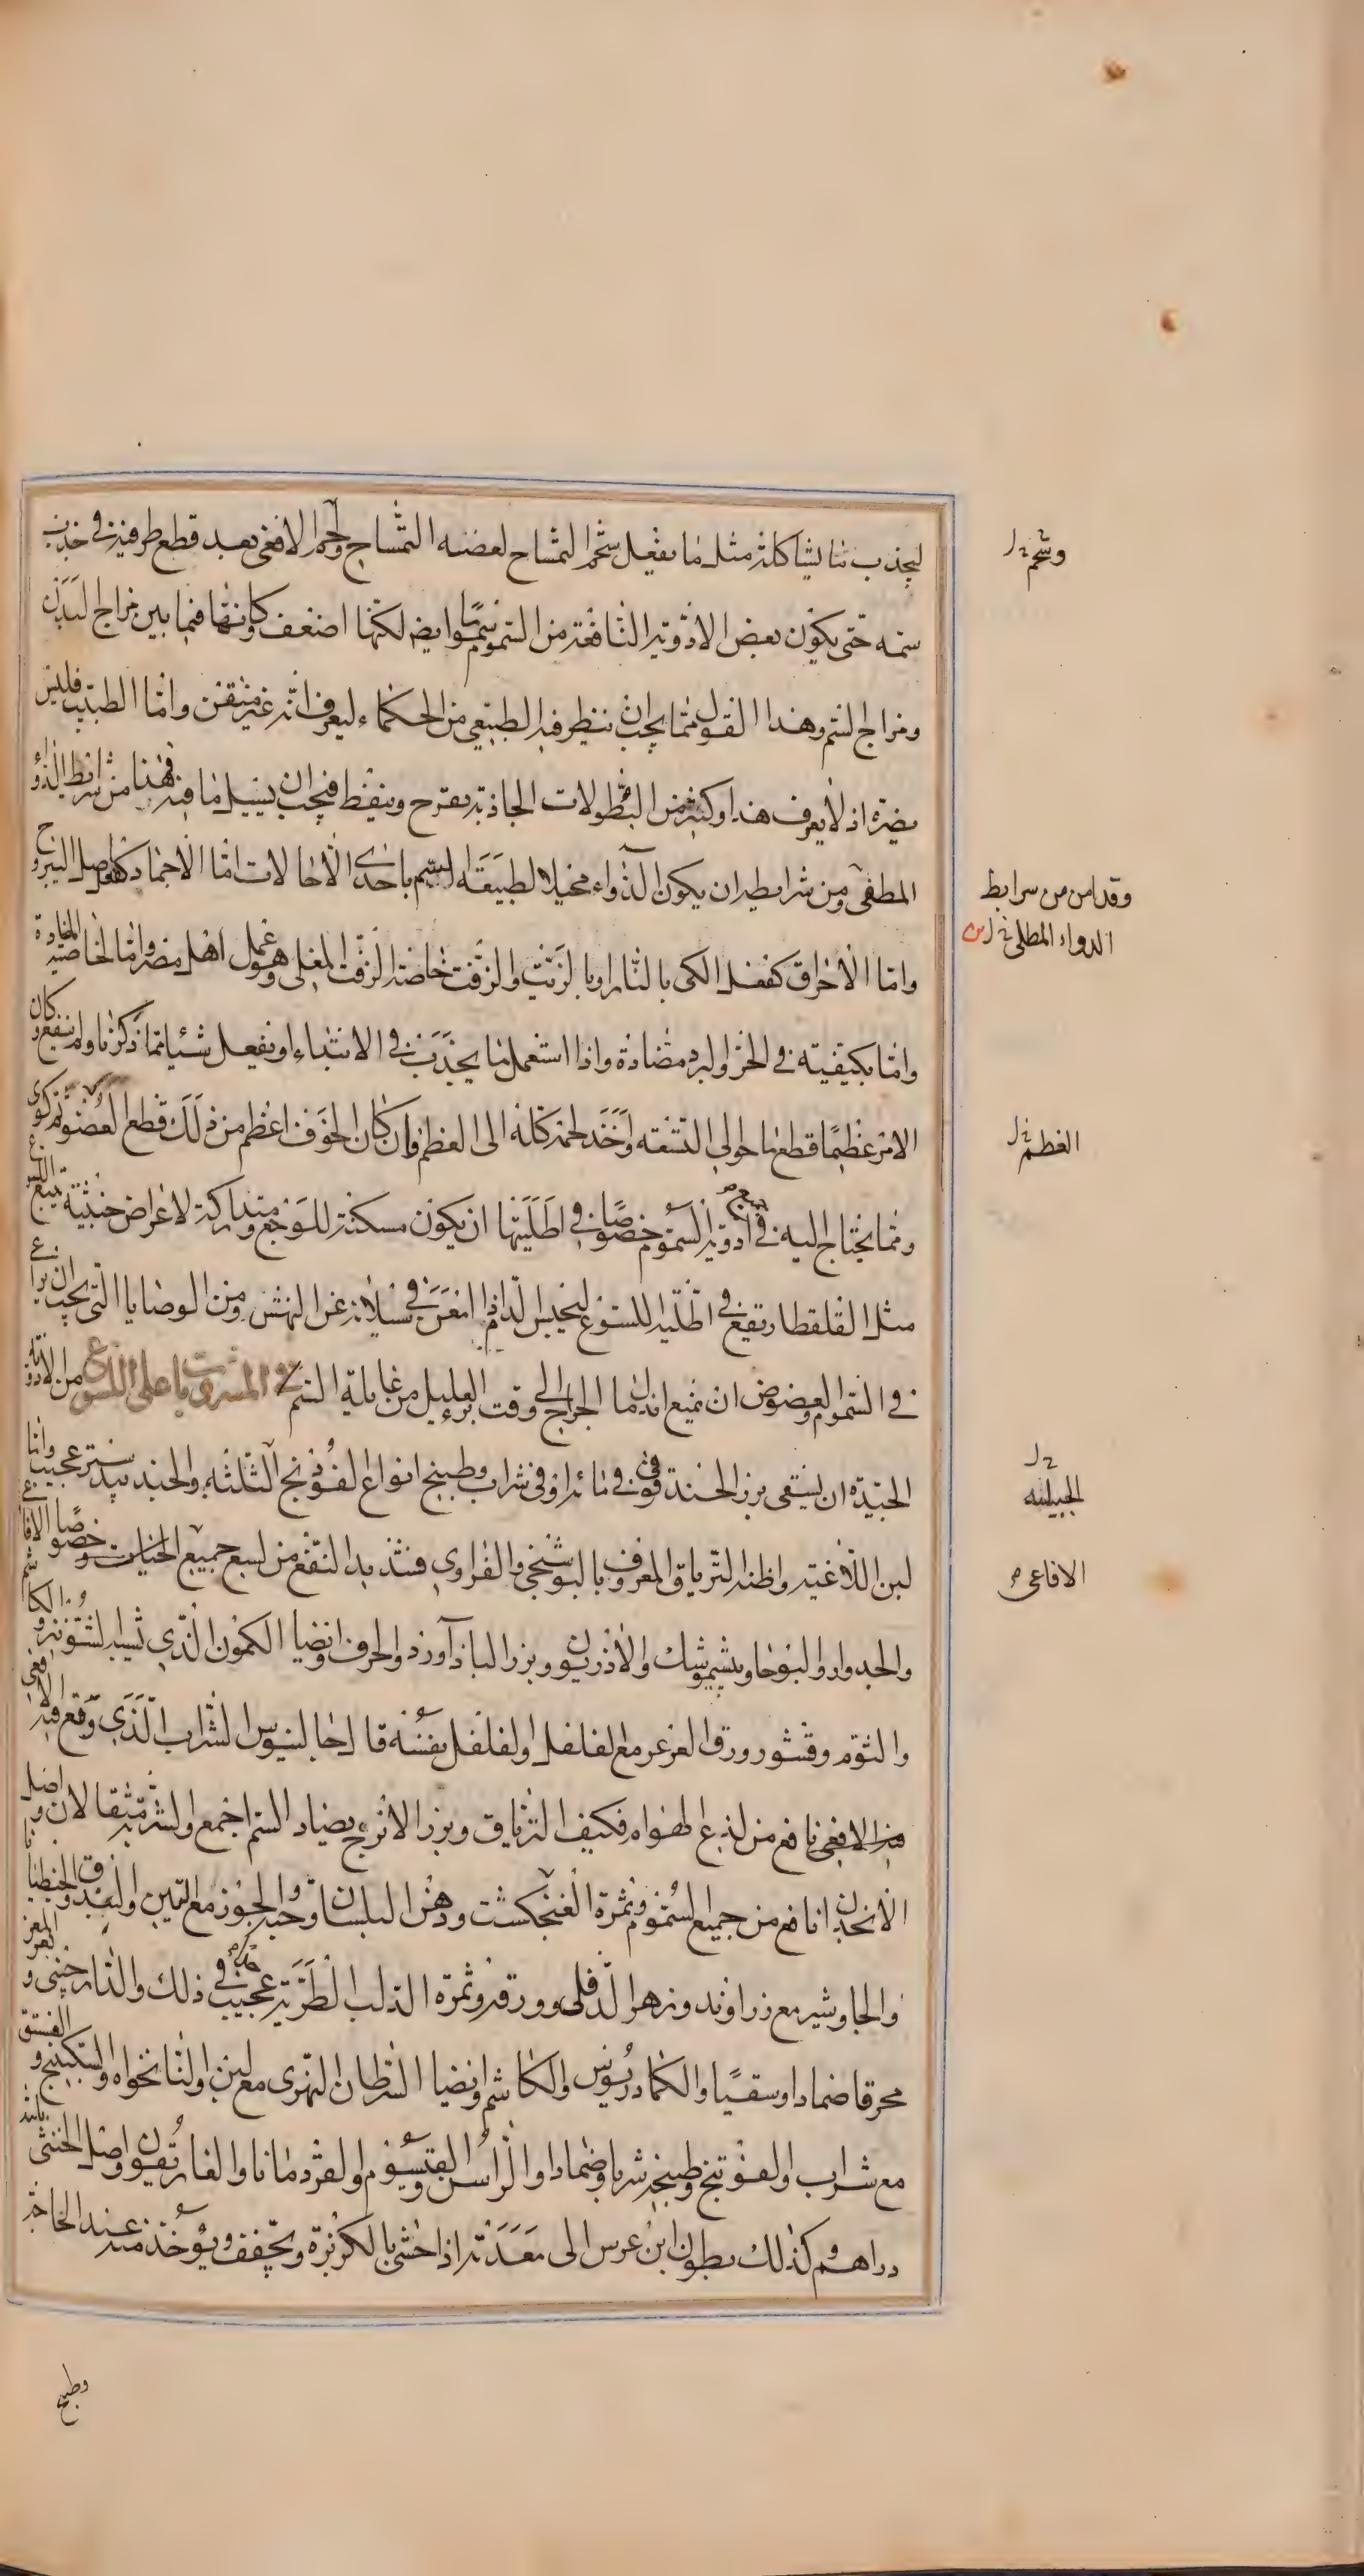 ليجذب ما يشاكله مثل ما يفعل شحم التمساح لعضه التمساح ولحم الافعى بعد قطع طرفيه في جذب
سمه حتى يكون بعض الادوية النافعة من السموم سموما ايضا لكنها اضعف وكانها فيما بين مزاج البدن
ومزاج السم وهذا القول مما يجب ان ينظر فيه الطبيعي من الحكماء ليعرف انه غير متقن واما الطبيب فليس
يضره اذ لا يعرف هذا وكثير من البطولات الجاذبة يقرح وينفط فيجب ان يسيل ما فيه فهذا من شرائط الدواء
المطفى ومن شرايطه ان يكون الدواء مخيلا لطبيعة السم باحدى الاحالات اما الاجماد كفعل اصل اليبروح
واما الاحراق كفعل الكى بالنار او بالزيت والزفت خاصة الزفت المغلى وهو عمل اهل مصر واما الخاصية المضادة
واما بكيفيته في الحر والبرد مضادة واذا استعمل ما يجذب في الابتداء او يفعل شيئا مما ذكرنا ولم ينفع وكان
الامر عظيما قطع ما حوالى النشفه واخذ لحمه كله الى العظم وان كان الخوف اعظم من ذلك قطع العضو ثم كوى
ومما يحتاج اليه في ادوية السموم خصوصا في اطليتها ان يكون مسكنة للوجع ومتداركة لاعراض خبيثة تتبع اللسع
مثل القلقطار تقع في اطلية اللسوع ليحبس الدم اذا امعن في سيلانه عن النهش ومن الوصايا التى يجب ان يراعى
في السموم والعضوض ان يمنع اندمال الجراح الى وقت برء العليل من غايلة السم في المشروبات على اللسوع من الادوية
الجيدة ان يسقى بزر الحندقوقى في مائه او في شراب وطبيخ انواع الفوذنج الثلثة والجندبيدستر عجيب وايضا
لبن اللاغية واظنه الترياق المعروف بالبوشنجى والفراوى فشديد النفع من لسع جميع الحيات وخصوصا الافاعى
والجدوار والبوحا وبيشموشك والاذريون وبزر الباذآورد والحرف وايضا الكمون الذى يشبه الشونيز والكاشم
والثوم وقشور ورق الغرغر مع الفلفل او الفلفل نفسه قال جالينوس الشراب الذى وقع فيه الافعى
فيه الافعى نافع من لذع الهوام فكيف الترياق وبزر الاترج يضاد السم اجمع والشربة مثقالان واصل
الانجدان نافع من جميع السموم وثمرة الفنجكشت ودهن البلسان وحبه والجوز مع التين او البندق والجنطيانا
والجاوشير مع زراوند وزهر الدفلى وورقه وثمرة الدلب الطرية عجيب في ذلك والدارصينى وبعر المعز
محرقا ضمادا وسقيا والكمادريوس والكاشم وايضا السرطان النهرى مع لبن والنانخواه والسكبينج والفستق
مع شراب والفوتنج وطبيخه شربا وضمادا والراسن والقيسوم والقردمانا والغاريقون واصل الخنثى ثلثة
دراهم وكذلك بطون ابن عرس الى معدته اذا حشى بالكزبرة ويجفف ويؤخذ منه عند الحاجة
وطبخ
وشحم
وقد امن من سرايط
الدواء المطلى
العظم
الجبيلية
الافاعى